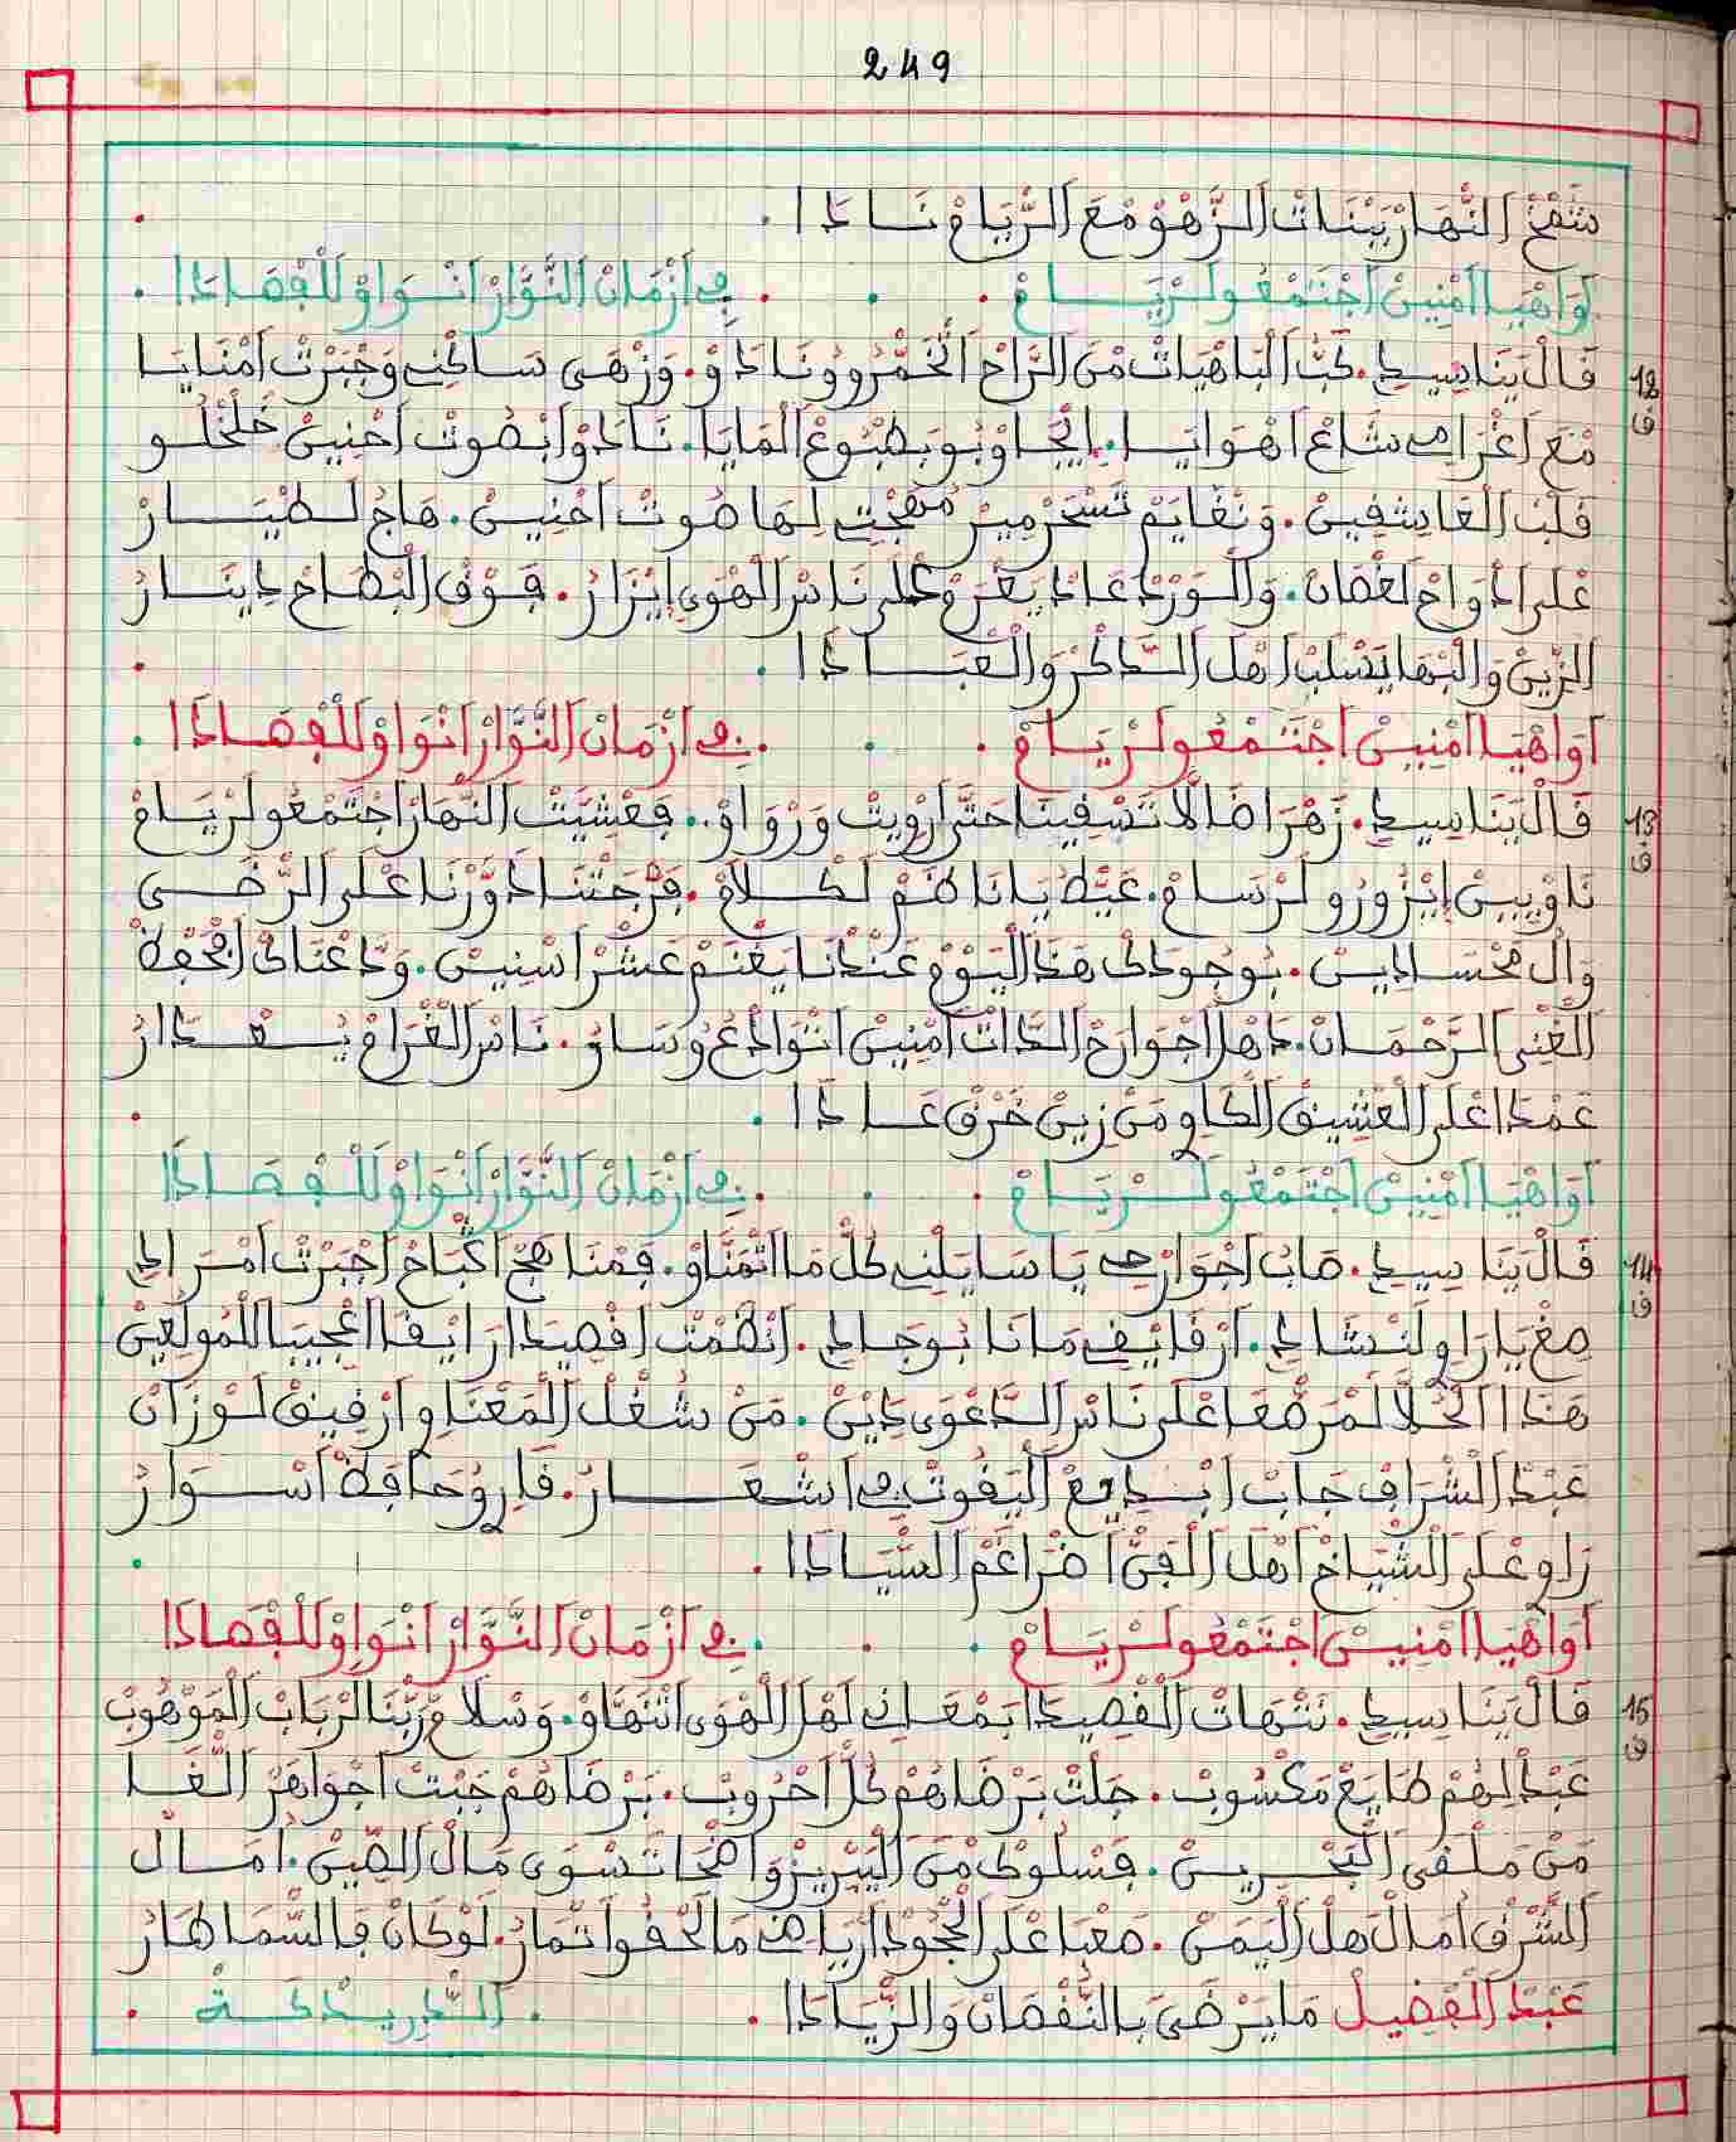 249
شفع النهار ببنات الزهو مع الرياح نادا .
أواهيا امنين اجتمعو لرياح . في ازمان النوار انواو للفصادا .
12 ف
قال ينا سيدي . كب الباهيات من الراح الخمر وونادو . وزهى ساكني وجبرت امنايا
مع اغرامي شاع اهوايا . ايجاوبو بطبوع المايا . نادو ابصوت احنين خلخلو
قلب العاشقين . ونغايم تسحر مير مهجتي لها صوت احنين . هاج لطيار
على ادواح لغصان . والورد عاد يعرو على ناس الهوى ايزار . فوق البطاح دينار
الزين والبها يسلب اهل الذكر والعبادا .
أواهيا امنين اجتمعو لرياح . في ازمان النوار انواو للفصادا .
13 ف
قال ينا سيدي . زهرا ضالا تسقينا حتى ارويت ورواو . فعشيت النهار اجتمعو لرياح
ناويين ايزورو لرسام . عيط يانا طم لكلام . فرجتنا دورنا على الرضى
وال محسادين . بوجودك هذ اليوم عندنا يغنم عشر اسنين . ودعناك افحفظ
الغني الرحمان . داهل اجوارح الدات امنين انوادعو وسارو . ناس الغرام يسعدار
عمدا على العشيق الكاوي من زين خرق عادا .
أواهيا امنين اجتمعو لرياح . في ازمان النوار انواو للفصادا
14 ف
قال ينا سيدي . صاب اجوارحي يا سايلني كل ما اتمناو . فمنا هج اكباح اجبرت امرادي
صغ يا راوي لنشادي . ارقايقي مانا بوجادي . انظمت اقصيدا رايقا اعجيبا للمولعين
هذا الحلا لمرصعا على ناس الدعوى دين . من شغل المعناوي ارقيق لوزان
عبد الشرافي جاب ابديع اليقوت في اشعار . قاري وحافظ اسوار
راوي على الشياخ اهل الفن اضراغم السيادا .
أواهيا امنين اجتمعو لرياح . في ازمان النوار انواو للفصادا
15 ف
قال ينا سيدي . نتهات القصيدا بمعاني لهل الهوى انتهاو . وسلام ربنا لرباب الموهوب
عبد لهم طايع مكسوب . جلت برضاهم كل احروب . برضاهم جبت اجواهر الغا
من ملقى البحرين . فسلوك من اليبريز واضحا تسوى مال الصين . امال
الشرق امال هل اليمن . صعبا على الجحود ارياضي ما لحقو اتمار . لوكان فالسما طار
عبد الفضيل ما يرضى بالنقصان والزيادا . الدريدكة .